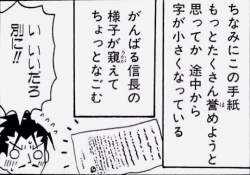 ちなみにこの手紙
もっとたくさん誉めようと
思ってか 途中から
字が小さくなっている
がんばる信長の
様子が窺えて
ちょっとなごむ
い いいだろ
別に!!